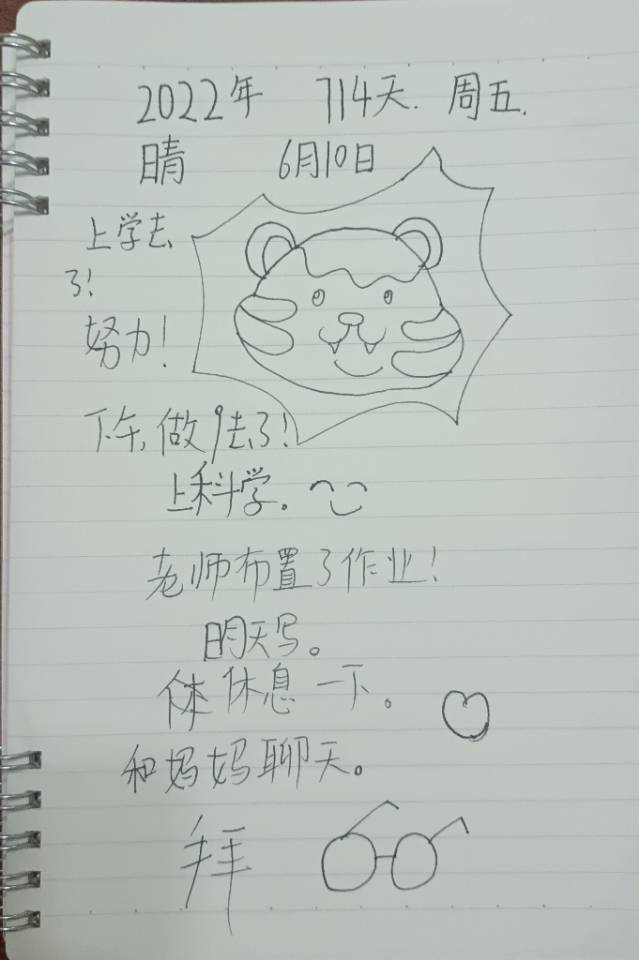 2022年 714天. 周五.
晴 6月10日
上学去
了!
努力!
下午,做 去了!
上科学。
老师布置了作业!
明天写。
休息一下。
和妈妈聊天。
拜